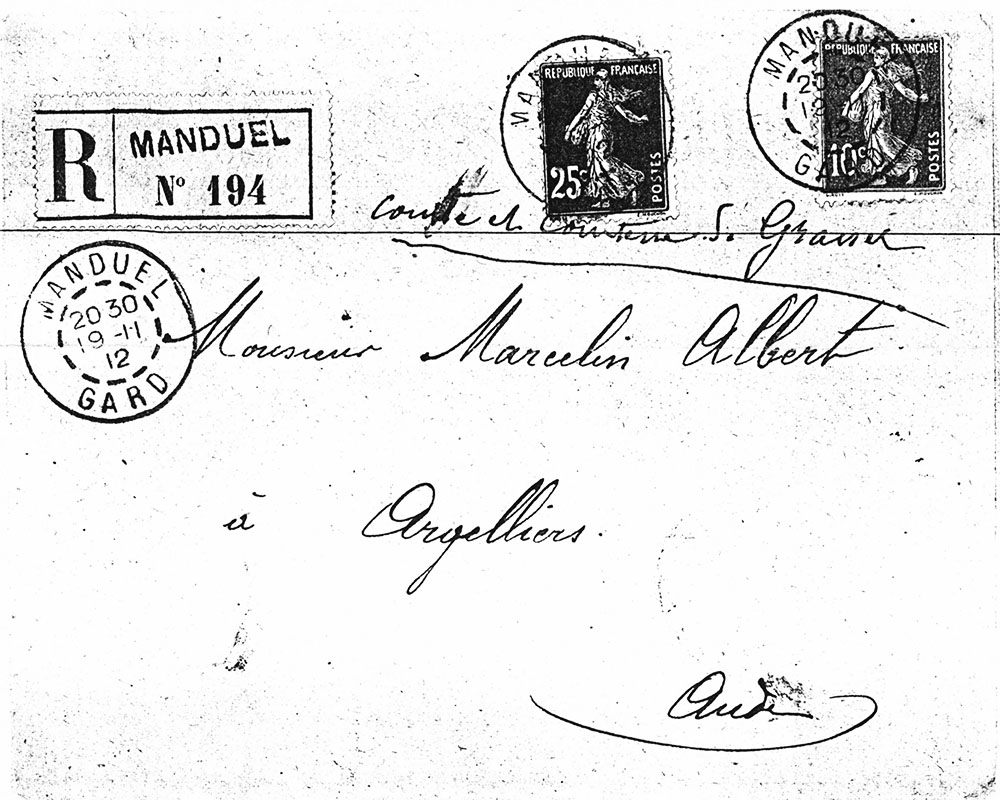 MANDUEL
REPUBLIQUE FRANÇAISE
25c
POSTES
MANDUEL
20 30
12
GARD
REPUBLIQUE FRANÇAISE
10c
POSTES
R
MANDUEL
N° 194
comte et comtesse de Grasset
MANDUEL
20 30
19 -11
12
GARD
Monsieur Marcelin Albert
à Argelliers.
Aude